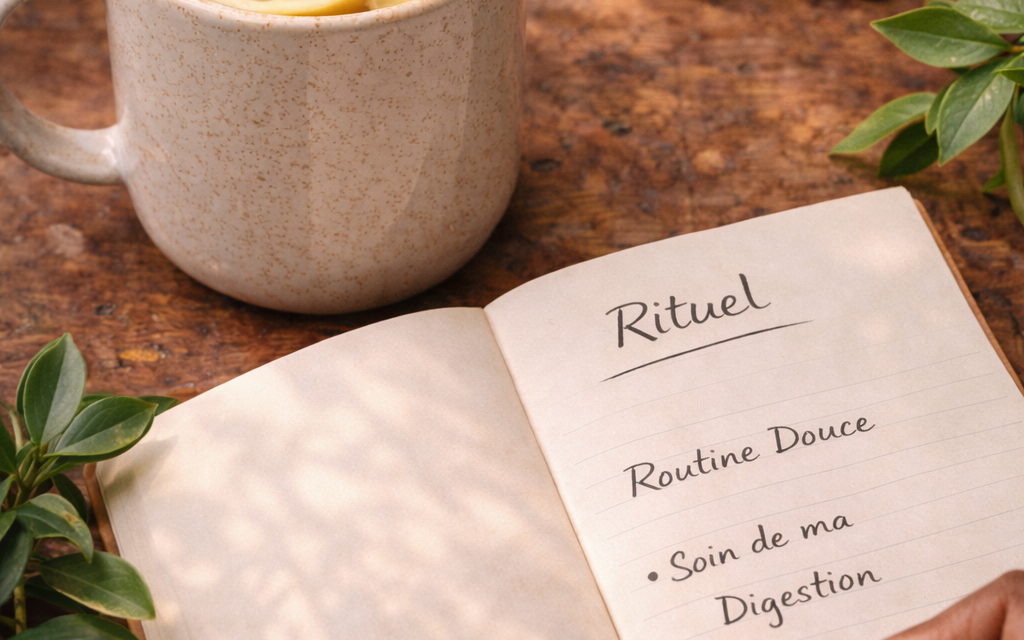 Rituel
Routine Douce
• Soin de ma
Digestion